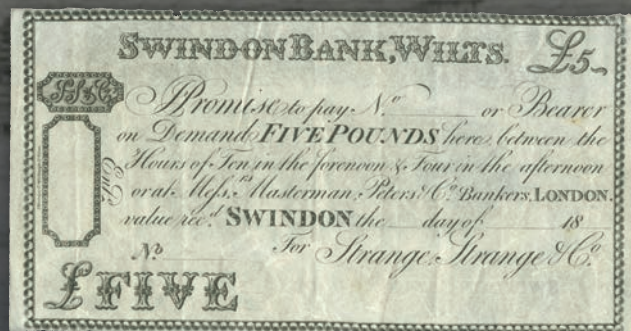 SWINDON BANK, WILTS. £5
I Promise to pay N.º or Bearer
on Demand FIVE POUNDS here, between the
Hours of Ten in the forenoon & Four in the afternoon
or at Mess.rs Masterman, Peters & Cº Bankers, LONDON.
value rec.d SWINDON the day of 18
Nº For Strange, Strange & Cº
Ent.d
£ FIVE